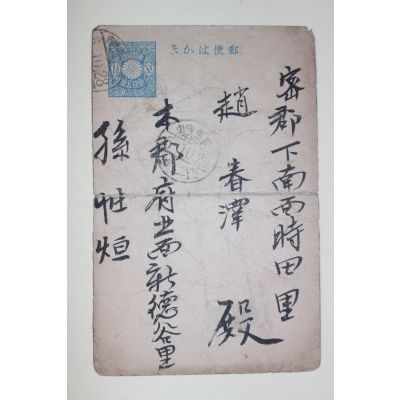 郵便はかき
密郡下南面時田里
趙春澤 殿
本郡府北面新德谷里
孫